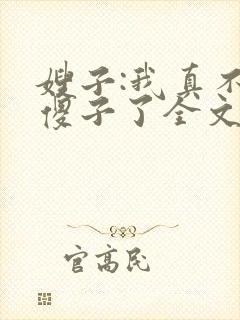 嫂子:我真不
傻子了全文
官高民